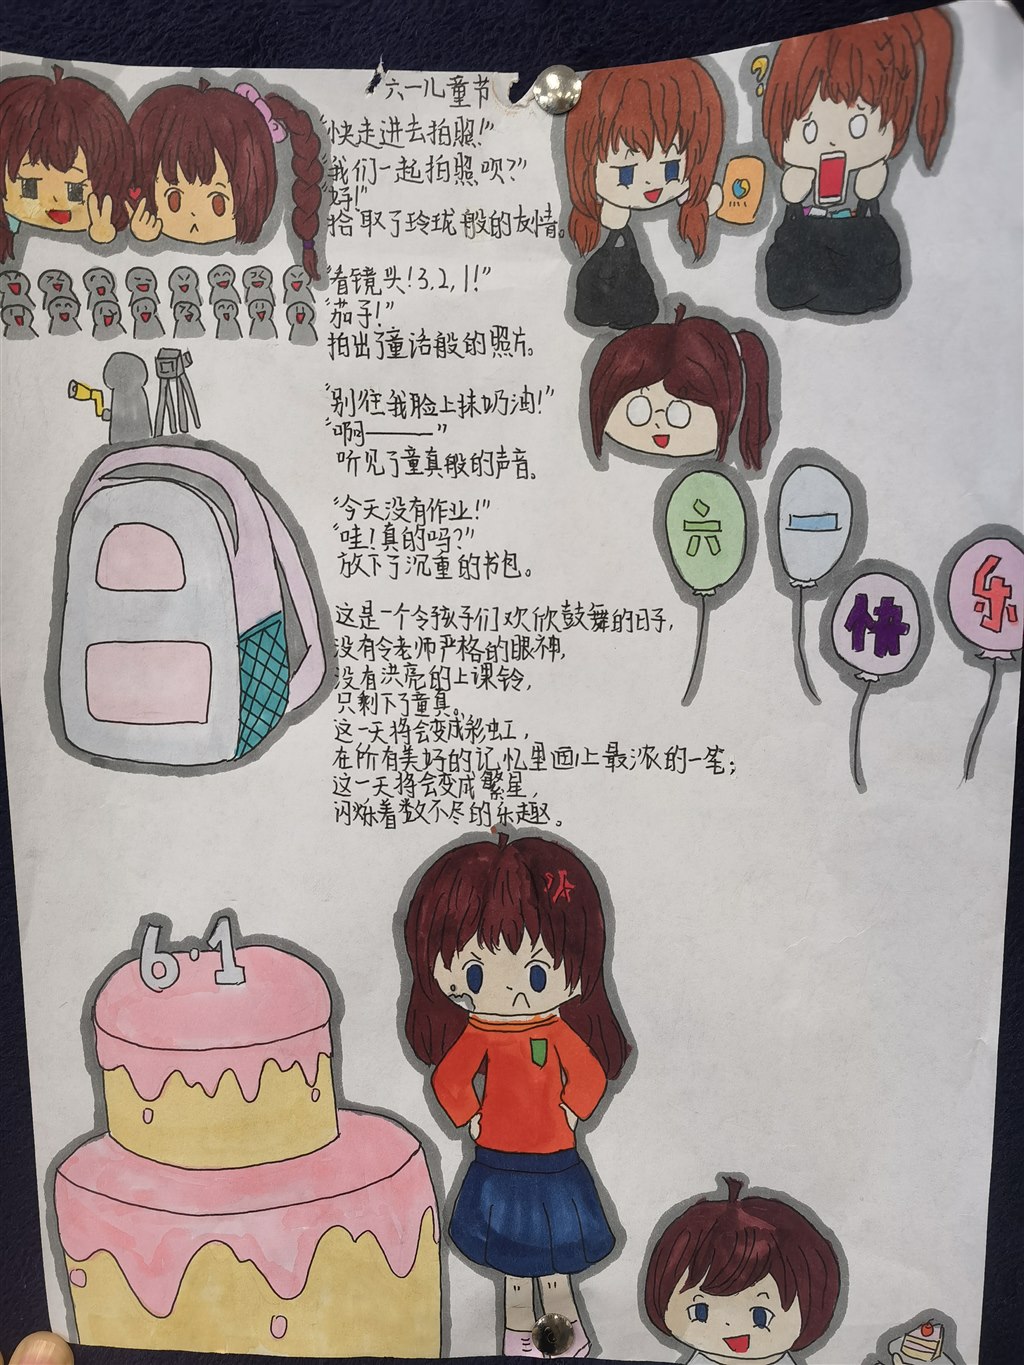 六一儿童节
“快走进去拍照!”
“我们一起拍照吹?”
“好!”
拾取了玲珑般的友情。
“看镜头!3,2,1!”
“茄子!”
拍出了童话般的照片。
“别往我脸上抹奶油!”
“啊———”
听见了童真般的声音。
“今天没有作业!”
“哇!真的吗?”
放下了沉重的书包。
这是一个令孩子们欢欣鼓舞的日子,
没有令老师严格的眼神,
没有洪亮的上课铃,
只剩下了童真。
这一天将会变成彩虹,
在所有美好的记忆里画上最浓的一笔;
这一天将会变成繁星,
闪烁着数不尽的乐趣。
六一快乐
6·1